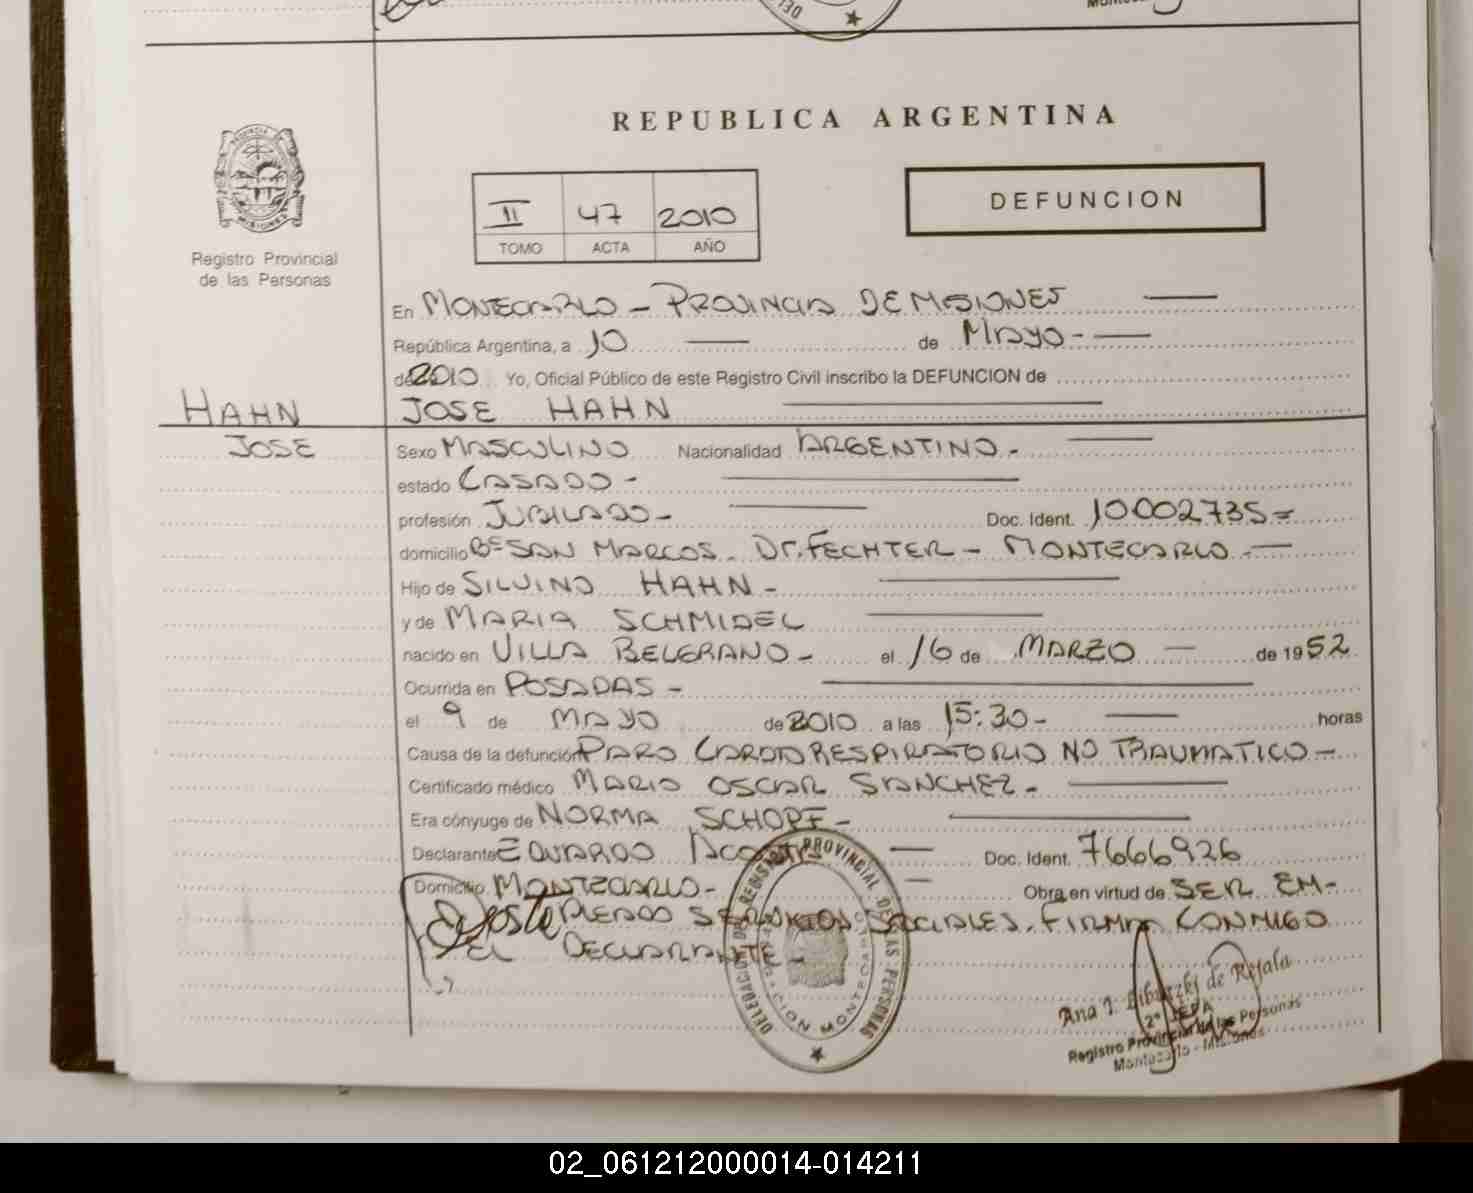 REPUBLICA ARGENTINA
PROVINCIA
MISIONES
Registro Provincial
de las Personas
II 47 2010
TOMO ACTA AÑO
DEFUNCION
En MONTECARLO - PROVINCIA DE MISIONES
República Argentina, a 10 de MAYO -
de 2010 Yo, Oficial Público de este Registro Civil inscribo la DEFUNCION de
HAHN
JOSE HAHN
JOSE
Sexo MASCULINO Nacionalidad ARGENTINO -
estado CASADO -
profesión JUBILADO - Doc. Ident. 10002735=
domicilio Bº SAN MARCOS - DR. FECHTER - MONTECARLO -
Hijo de SILVINO HAHN -
y de MARIA SCHMIDEL
nacido en VILLA BELGRANO - el 16 de MARZO - de 1952
Ocurrida en POSADAS -
el 9 de MAYO de 2010 a las 15:30 - horas
Causa de la defunción PARO CARDIORESPIRATORIO NO TRAUMATICO -
Certificado médico MARIO OSCAR SANCHEZ -
Era cónyuge de NORMA SCHOPF -
Declarante EDUARDO ACOSTA - Doc. Ident. 7666926
Domicilio MONTECARLO - Obra en virtud de SER EM-
PLEADO SERVICIOS SOCIALES. FIRMA CONMIGO
EL DECLARANTE -
DELEGACION DEL REGISTRO PROVINCIAL DE LAS PERSONAS
Ana I. de Rejala
2ª JEFA
Registro Provincial de las Personas
Montecarlo - Misiones
02_061212000014-014211